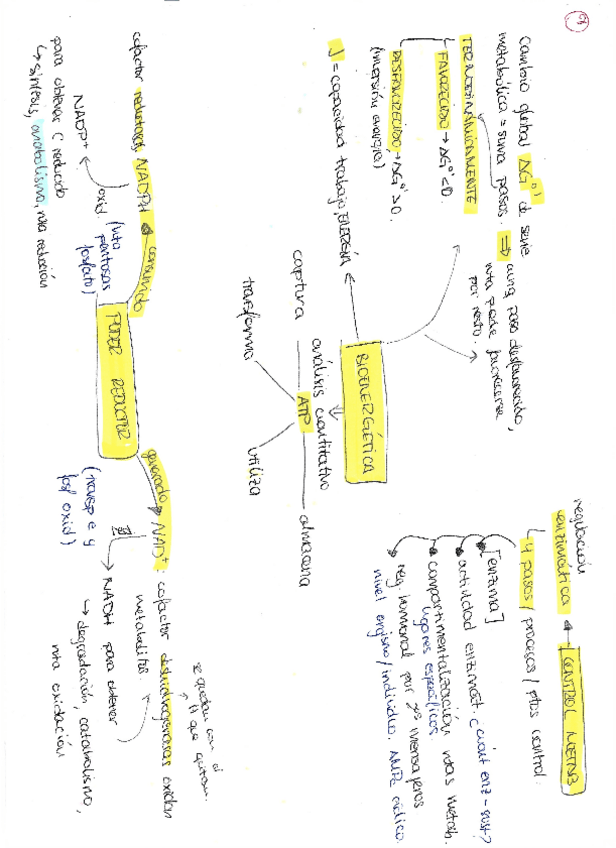 Cambio global ΔG°' de serie
metabólica = suma pasos. ⇒ aunq paso desfavorecido,
ruta puede favorecerse
por resto.
TERMODINÁMICAMENTE
FAVORECIDO → ΔG°' < 0.
DESFAVORECIDO → ΔG°' > 0.
(inversión energía)
J = capacidad trabajo, ENERGÍA
BIOENERGÉTICA
análisis cuantitativo
captura
transforma
ATP
utiliza
almacena
CONTROL METAB
regulación
enzimática
4 pasos / procesos / ptos control.
[enzima]
actividad enzimát
compartimentalización rutas metab.
lugares específicos.
reg. hormonal por 2os mensajeros
nivel orgismo / individuo. AMPc cíclico.
PODER REDUCTOR
consumido
cofactor reductasas, NADPH
oxid (ruta
pentosas
fosfato)
NADP+
para obtener C reducido
↳ síntesis, anabolismo, ruta reducción
generado
NAD+: cofactor deshidrogenasas oxidan
metabolitos
se quedan con el
H que quitan.
(transp e- y
fosf oxid)
NADH para obtener
↳ degradación, catabolismo,
ruta oxidación